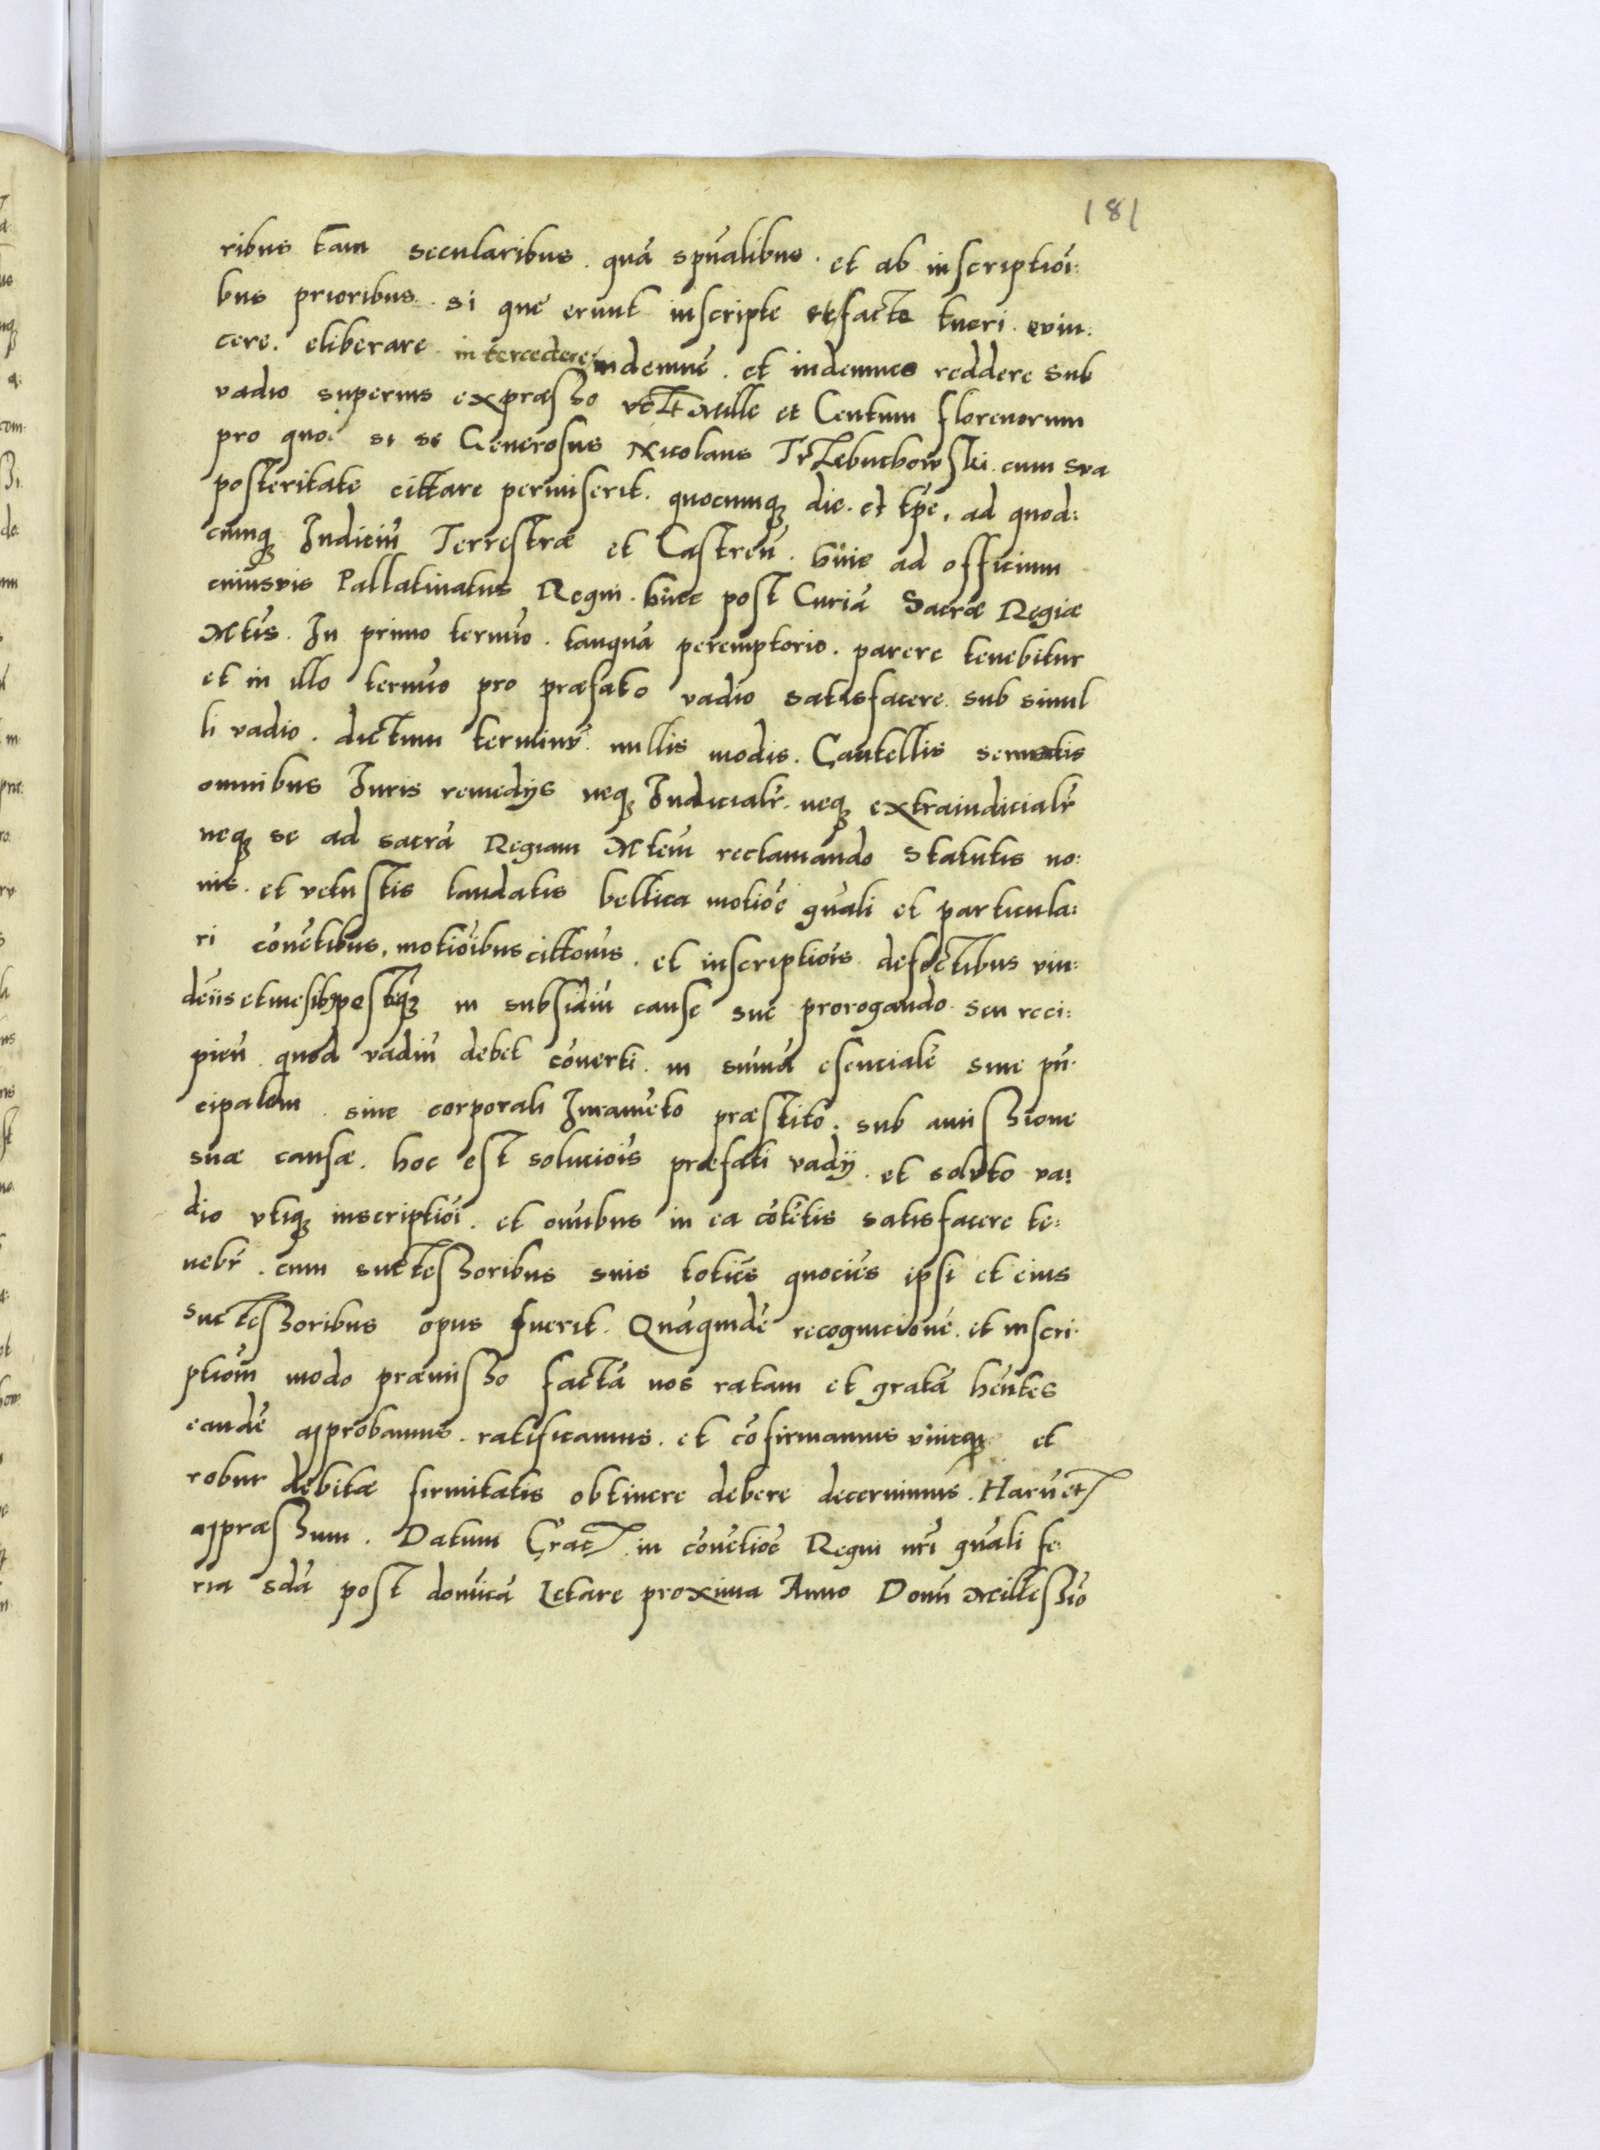 181
ribus tam secularibus. quā spūalibus. et ab inscriptioī:
bus prioribus. si quę erunt inscripte et facte tueri. evin:
cere. eliberare intercedere indemnē. et indemnes reddere sub
vadio superius expræsso Mille et Centum florenorum
pro quo. si se Generosus Nicolaus Trzebuchowski. cum sua
posteritate cittare permiserit. quocumq; die. et tpē. ad quod:
cumq; Iudiciū Terrestræ et Castreñ. huic ad officium
cuiusvis Pallatinatus Regni. post Curiā Sacræ Regiæ
Mtis. In primo termīo. tanquā peremptorio. parere tenebitur
et in illo termīo pro præfato vadio satisfacere. sub simil
li vadio. dictum terminū nullis modis. Cautellis semotis
omnibus Iuris remedijs neq; Iudicialr̄. neq; extraiudicialr̄
neq; se ad sacrā Regiam Mtem̄ reclamando Statutis no:
uis. et vetustis laudatis bellica motiōe gñali et particula:
ri cōuētibus, motiōibus cittōnis. et inscriptiōis defectibus vin:
in subsidiū cause sue prorogando. seu reci:
pieñ. quod vadiū debet cōuerti. in sum̄ā esencialē siue pñ:
cipalem. sine corporali Iuramēto præstito. sub amissione
suæ causæ. hoc est soluciōis præfati vadij. et soluto va:
dio vtiq; inscriptiōi. et om̄ibus in ea cōtētis satisfacere te:
nebr̄. cum suctessoribus suis totiēs quociēs ipsi et eius
suctessoribus opus fuerit. Quāquidē recognicionē. et inscri:
ptiōm modo præmisso factā nos ratam et gratā hēntes
eandē approbamus. ratificamus. et cōfirmamus et
robur debitæ firmitatis obtinere debere decernimus. Harū etc
appræssum. Datum Crac. in cōuētiōe Regni nrī gñali fe:
ria sdā post domīcā Letare proxima Anno Domī Millessīo